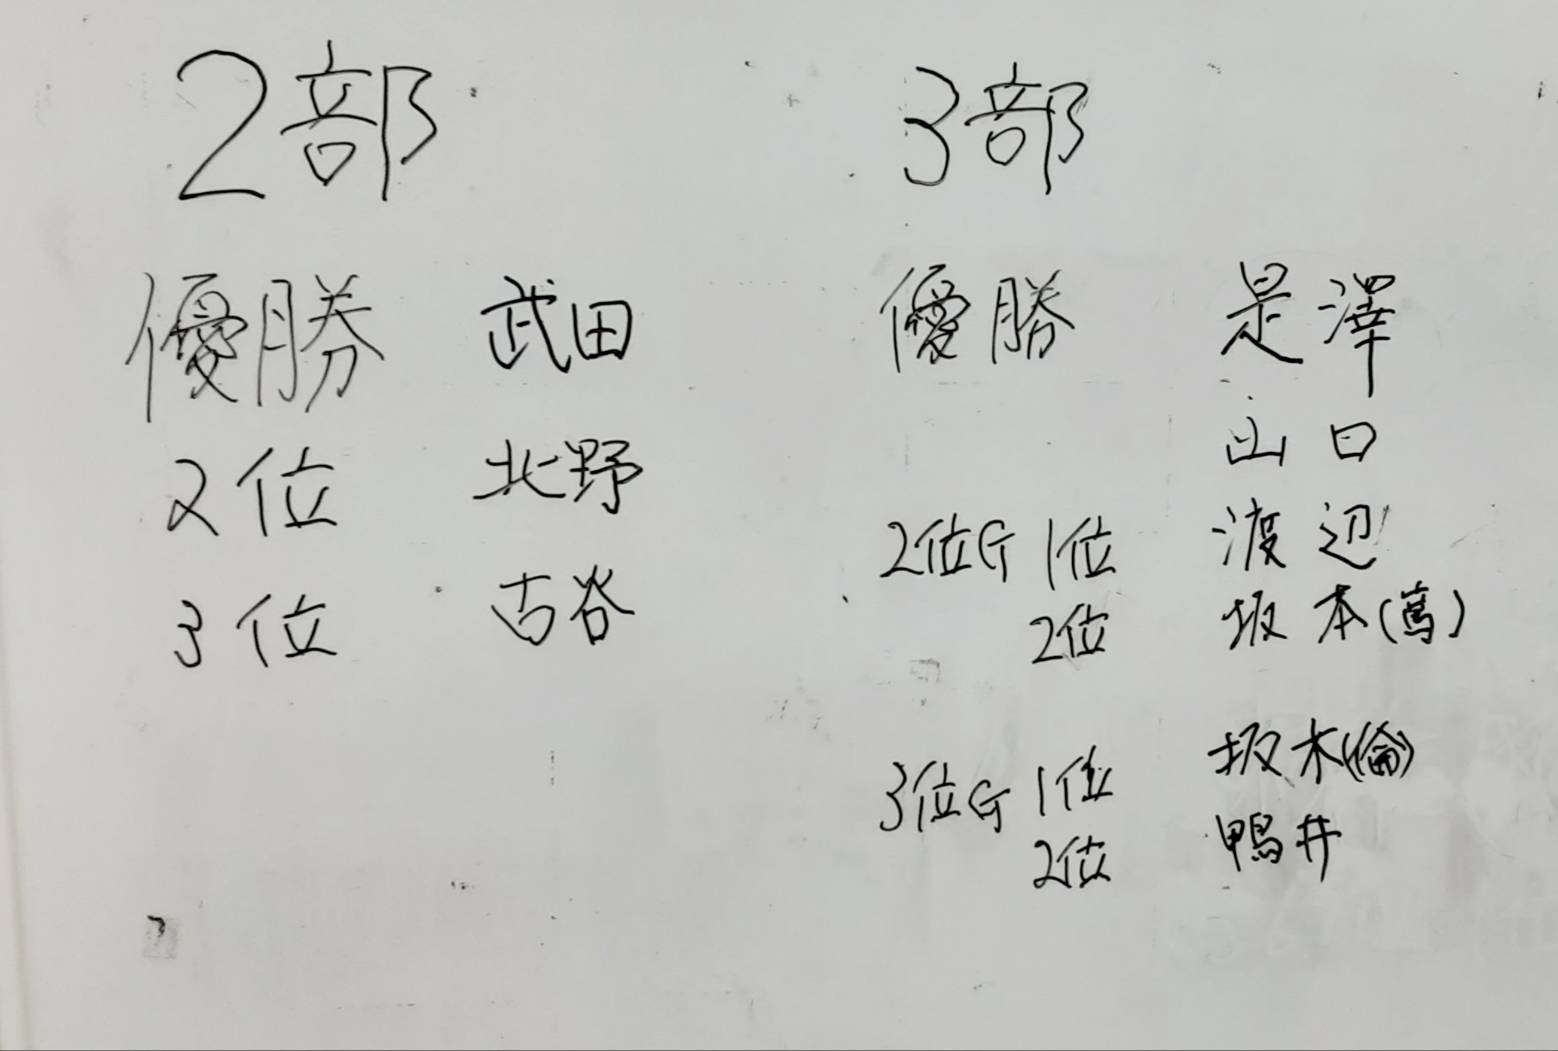 2部
優勝 武田
2位 北野
3位 古谷
3部
優勝 是澤
山口
2位G 1位 渡辺
2位 坂本(篤)
3位G 1位 坂本(倫)
2位 鴨井